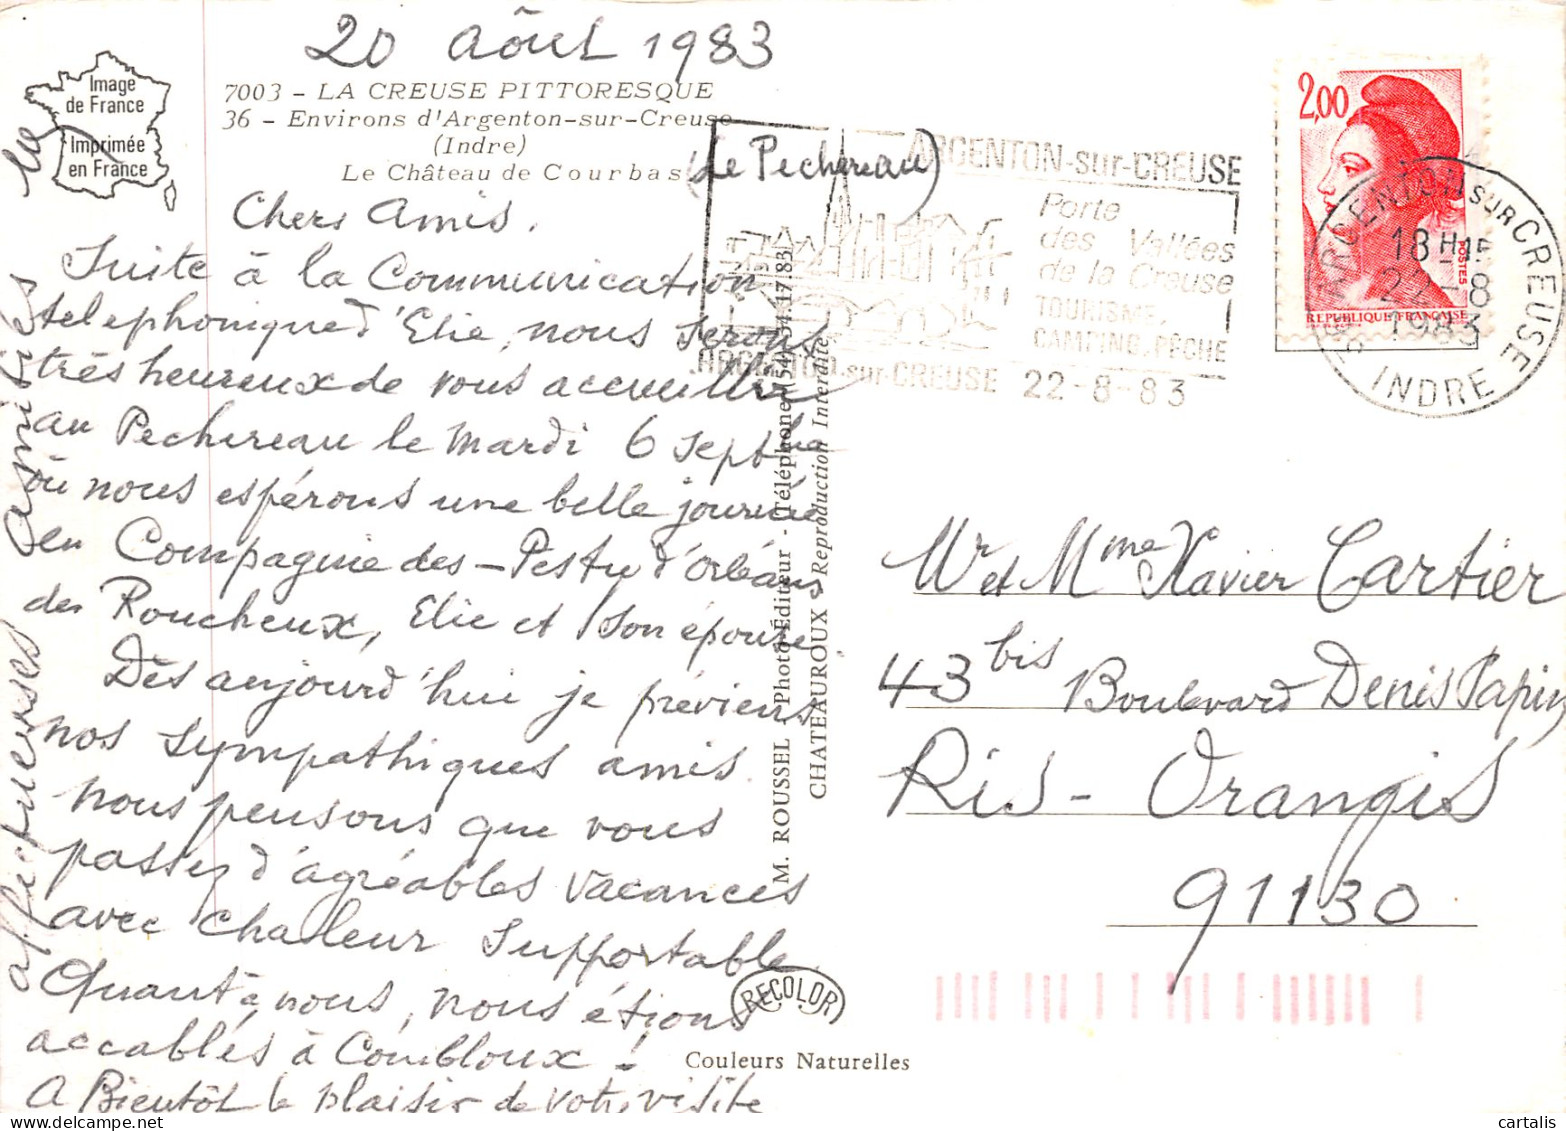 20 Aôut 1983
Image
de France
Imprimée
en France
7003 - LA CREUSE PITTORESQUE
36 - Environs d'Argenton-sur-Creuse
(Indre)
Le Château de Courbas
(Le Pechereau)
Chers Amis.
Suite à la Communication
telephonique d'Elie, nous serons
très heureux de vous accueillir
au Pechereau le Mardi 6 Septbre
où nous espérons une belle journée
en Compagnie des - Pesty d'Orléans
des Roucheux, Elie et son épouse
Dès aujourd'hui je préviens
nos sympathiques amis.
nous pensons que vous
passez d'agréables vacances
avec chaleur supportable.
Quant à nous, nous étions
accablés à Combloux !
A Bientôt le plaisir de votre visite
affectueuses amitiés
M. ROUSSEL Photo-Éditeur - Téléphone (54) 34.17.83
CHATEAUROUX Reproduction Interdite
RECOLOR
Couleurs Naturelles
ARGENTON-sur-CREUSE
Porte
des Vallées
de la Creuse
TOURISME,
CAMPING, PÊCHE
ARGENTON-sur-CREUSE 22-8-83
2,00
POSTES
REPUBLIQUE FRANÇAISE
ARGENTON SUR CREUSE
18 H 15
22-8
1983
INDRE
Mr et Mme Xavier Cartier
43 bis Boulevard Denis Papin
Ris-Orangis
91130
cartalis